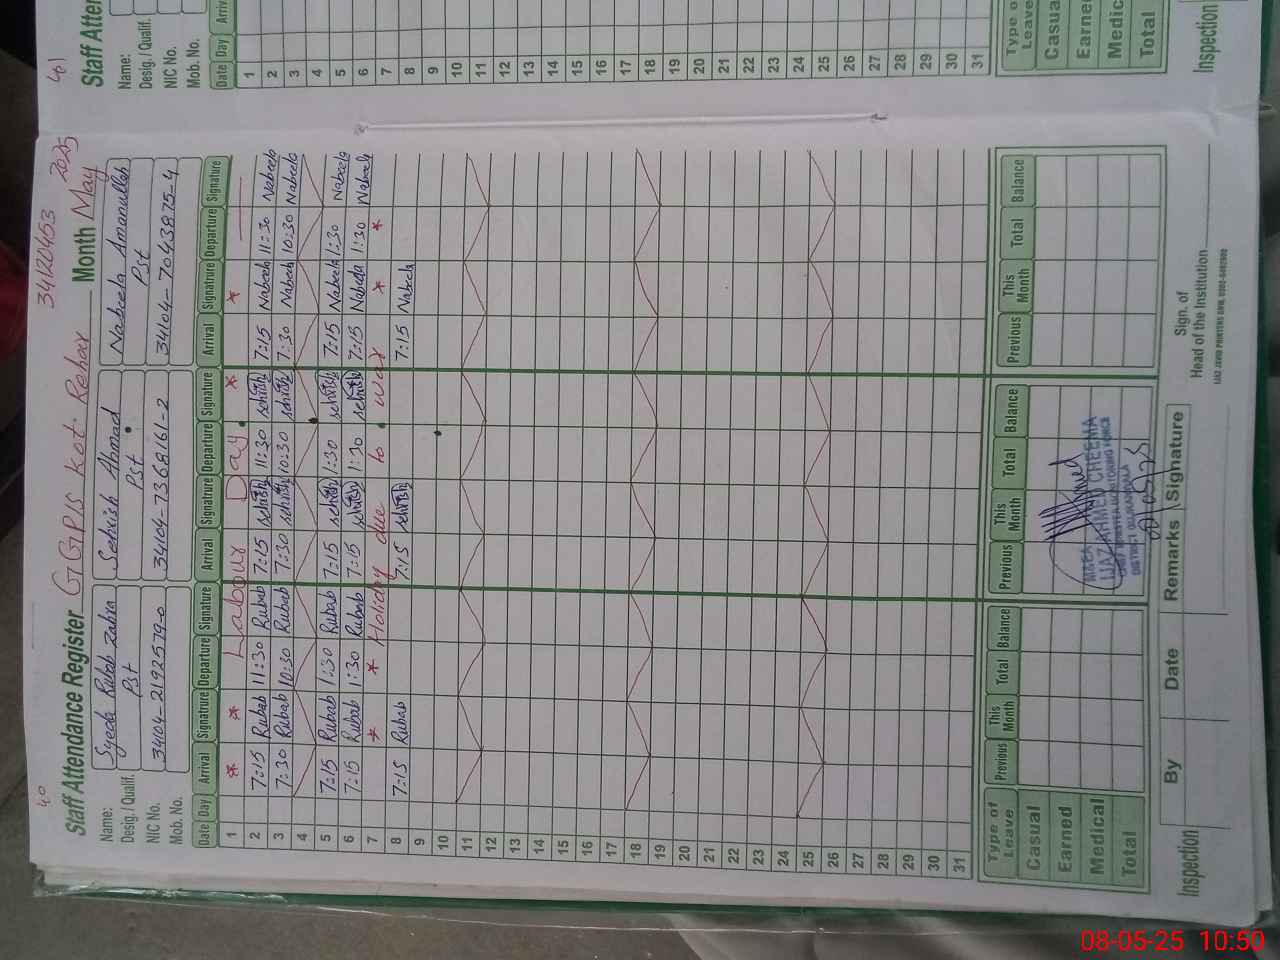 40
34120453
Staff Attendance Register GGP/S Kot. Rehar Month May 2025
Name: Syeda Rubab Zahra Sehrish Ahmad Nabeela Amanullah
Desig. / Qualif. Pst Pst Pst
NIC No. 34104-2192579-0 34104-7368161-2 34104-7043875-4
Mob. No.
Date Day Arrival Signatrure Departure Signature Arrival Signatrure Departure Signature Arrival Signatrure Departure Signature
1 * * Labour Day * *
2 7:15 Rubab 11:30 Rubab 7:15 sehrish 11:30 sehrish 7:15 Nabeela 11:30 Nabeela
3 7:30 Rubab 10:30 Rubab 7:30 sehrish 10:30 sehrish 7:30 Nabeela 10:30 Nabeela
4
5 7:15 Rubab 1:30 Rubab 7:15 sehrish 1:30 sehrish 7:15 Nabeela 1:30 Nabeela
6 7:15 Rubab 1:30 Rubab 7:15 sehrish 1:30 sehrish 7:15 Nabeela 1:30 Nabeela
7 * * Holiday due to war * *
8 7:15 Rubab 7:15 sehrish 7:15 Nabeela
9
10
11
12
13
14
15
16
17
18
19
20
21
22
23
24
25
26
27
28
29
30
31
Type of Leave Previous This Month Total Balance Previous This Month Total Balance Previous This Month Total Balance
Casual
Earned
Medical
Total
MEA
IJAZ AHMED CHEEMA
CHIEF MINISTER MONITORING FORCE
DISTRICT GUJRANWALA
Inspection By Date Remarks Signature
Sign. of
Head of the Institution
41
Staff Atten
Name:
Desig. / Qualif.
NIC No.
Mob. No.
Date Day Arriv
1
2
3
4
5
6
7
8
9
10
11
12
13
14
15
16
17
18
19
20
21
22
23
24
25
26
27
28
29
30
31
Type of Leave
Casua
Earne
Medic
Total
Inspection
08-05-25 10:50